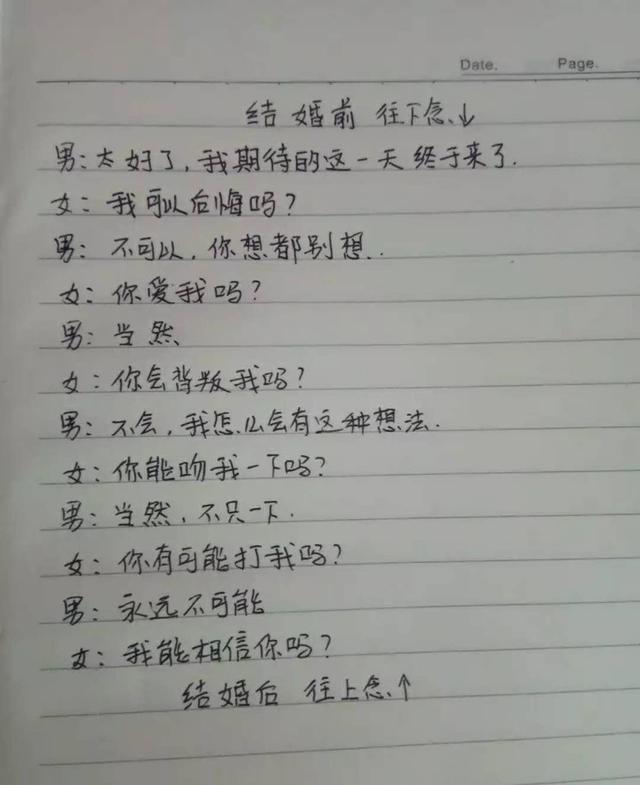 Date.  Page.
结婚前 往下念↓
男:太好了,我期待的这一天终于来了.
女:我可以后悔吗?
男:不可以,你想都别想..
女:你爱我吗?
男:当然
女:你会背叛我吗?
男:不会,我怎么会有这种想法.
女:你能吻我一下吗?
男:当然,不只一下.
女:你有可能打我吗?
男:永远不可能
女:我能相信你吗?
结婚后 往上念↑